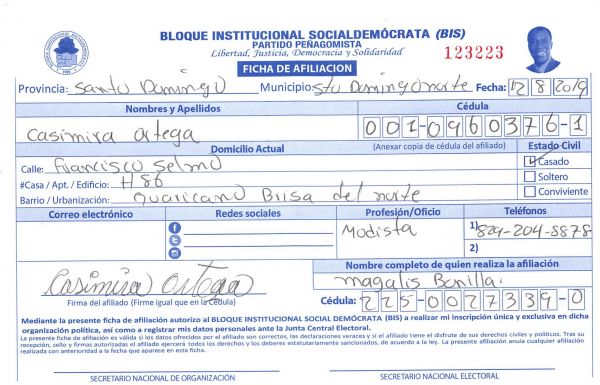 BLOQUE INSTITUCIONAL SOCIALDEMÓCRATA (BIS)
PARTIDO PEÑAGOMISTA
Libertad, Justicia, Democracia y Solidaridad
123223
FICHA DE AFILIACION
Provincia: Santo Domingo Municipio: Sto Domingo norte Fecha: 12 8 2019
Nombres y Apellidos Cédula
Casimira Ortega 001-0960376-1
Domicilio Actual (Anexar copia de cédula del afiliado) Estado Civil
Calle: Francisco Selmo Casado
#Casa / Apt. / Edificio: H 86 Soltero
Barrio / Urbanización: Guaricano Brisa del norte Conviviente
Correo electrónico Redes sociales Profesión/Oficio Teléfonos
Modista 1) 829-204-8878
2)
Casimira Ortega
Nombre completo de quien realiza la afiliación
Magalis Bonilla.
Firma del afiliado (Firme igual que en la Cédula) Cédula: 225-0027339-0
Mediante la presente ficha de afiliación autorizo al BLOQUE INSTITUCIONAL SOCIAL DEMÓCRATA (BIS) a realizar mi inscripción única y exclusiva en dicha
organización política, así como a registrar mis datos personales ante la Junta Central Electoral.
La presente ficha de afiliación es válida si los datos ofrecidos por el afiliado son correctos, las declaraciones veraces y si el afiliado tiene el disfrute de sus derechos civiles y políticos. Tras su
recepción, sello y firmas autorizadas el afiliado ejercerá todos los derechos y los deberes estatutariamente sancionados, de acuerdo a la ley. La presente afiliación anula cualquier afiliación
realizada con anterioridad a la fecha que aparece en esta ficha.
SECRETARIO NACIONAL DE ORGANIZACIÓN SECRETARIO NACIONAL ELECTORAL